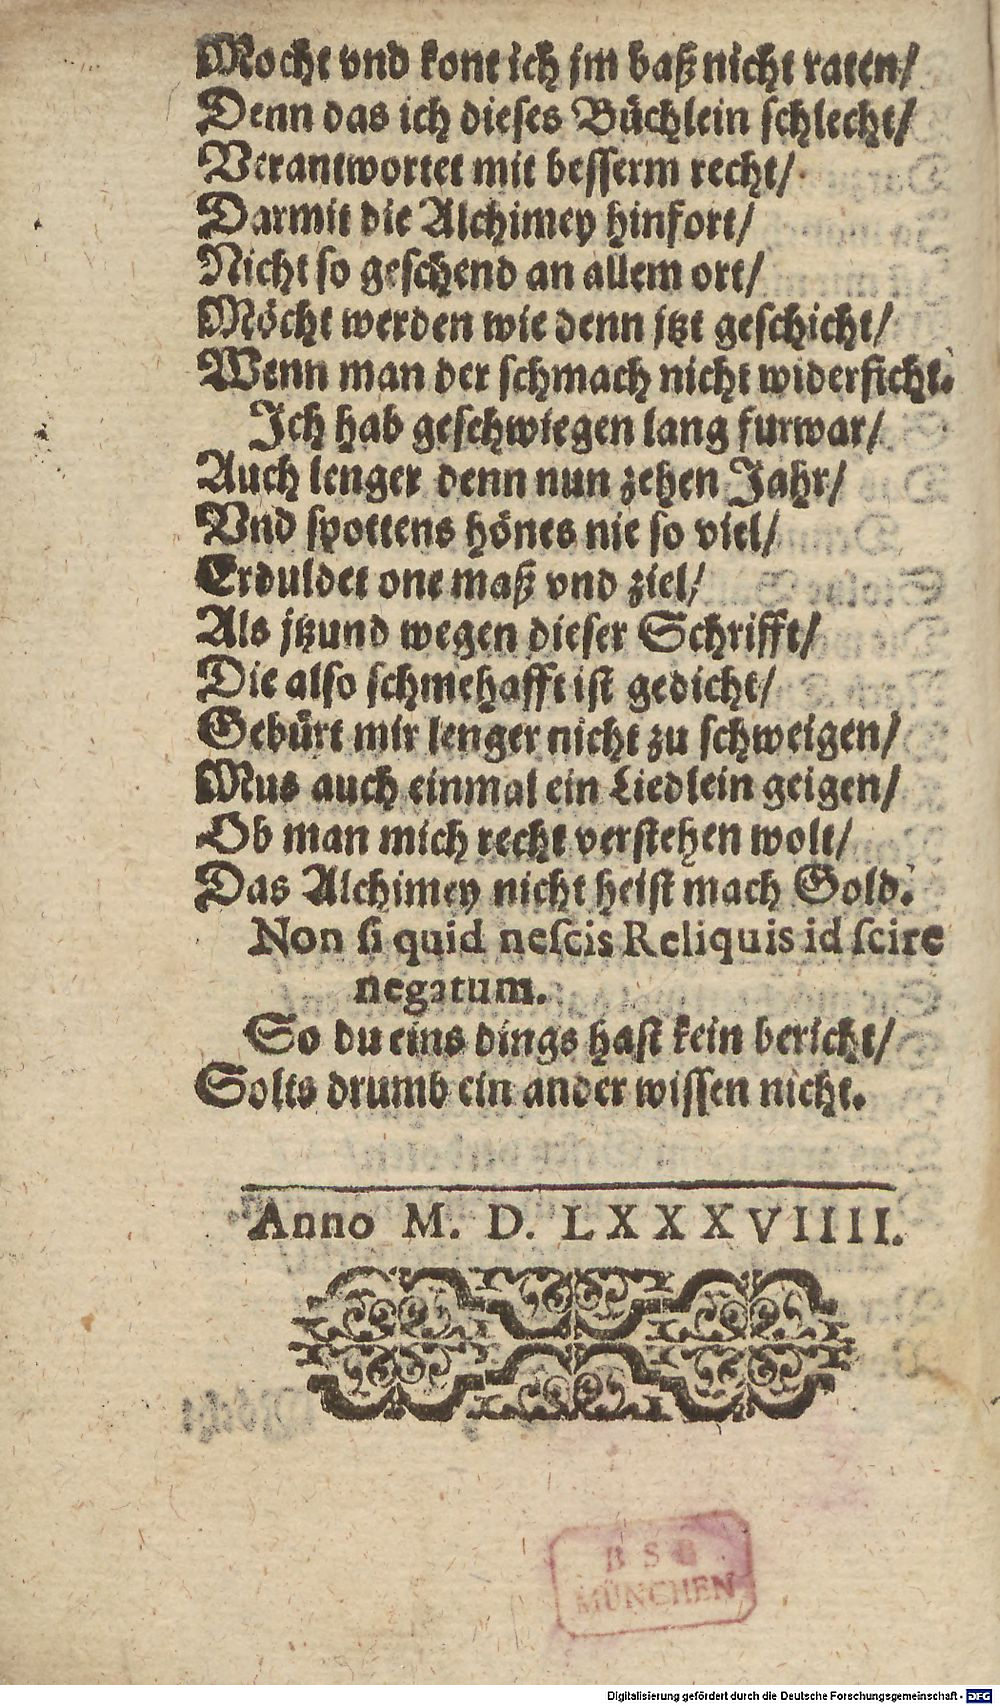 Mocht vnd kont ich jm baß nicht raten/
Denn das ich dieses Büchlein schlecht/
Verantwortet mit besserm recht/
Darmit die Alchimey hinfort/
Nicht so geschend an allem ort/
Möcht werden wie denn jtzt geschicht/
Wenn man der schmach nicht widerficht.
Ich hab geschwiegen lang furwar/
Auch lenger denn nun zehen Jahr/
Vnd spottens hönes nie so viel/
Erduldet one maß vnd ziel/
Als jtzund wegen dieser Schrifft/
Die also schmehafft ist gedicht/
Gebürt mir lenger nicht zu schweigen/
Mus auch einmal ein Liedlein geigen/
Ob man mich recht verstehen wolt/
Das Alchimey nicht heist mach Gold.
Non si quid neſcis Reliquis id ſcire
negatum.
So du eins dings hast kein bericht/
Solts drumb ein ander wissen nicht.
Anno M. D. LXXXVIIII.
BSB
MÜNCHEN
Digitalisierung gefördert durch die Deutsche Forschungsgemeinschaft - DFG